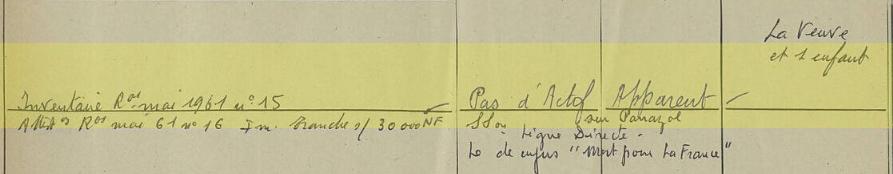 La Veuve
et 1 enfant
Inventaire Ros mai 1961 n° 15
Pas d'Actif Apparent
Attion Ros mai 61 n° 16 Im. tranche s/ 30 000 NF
SSon sur Panazol
Ligne Directe -
Le de cujus "Mort pour La France"